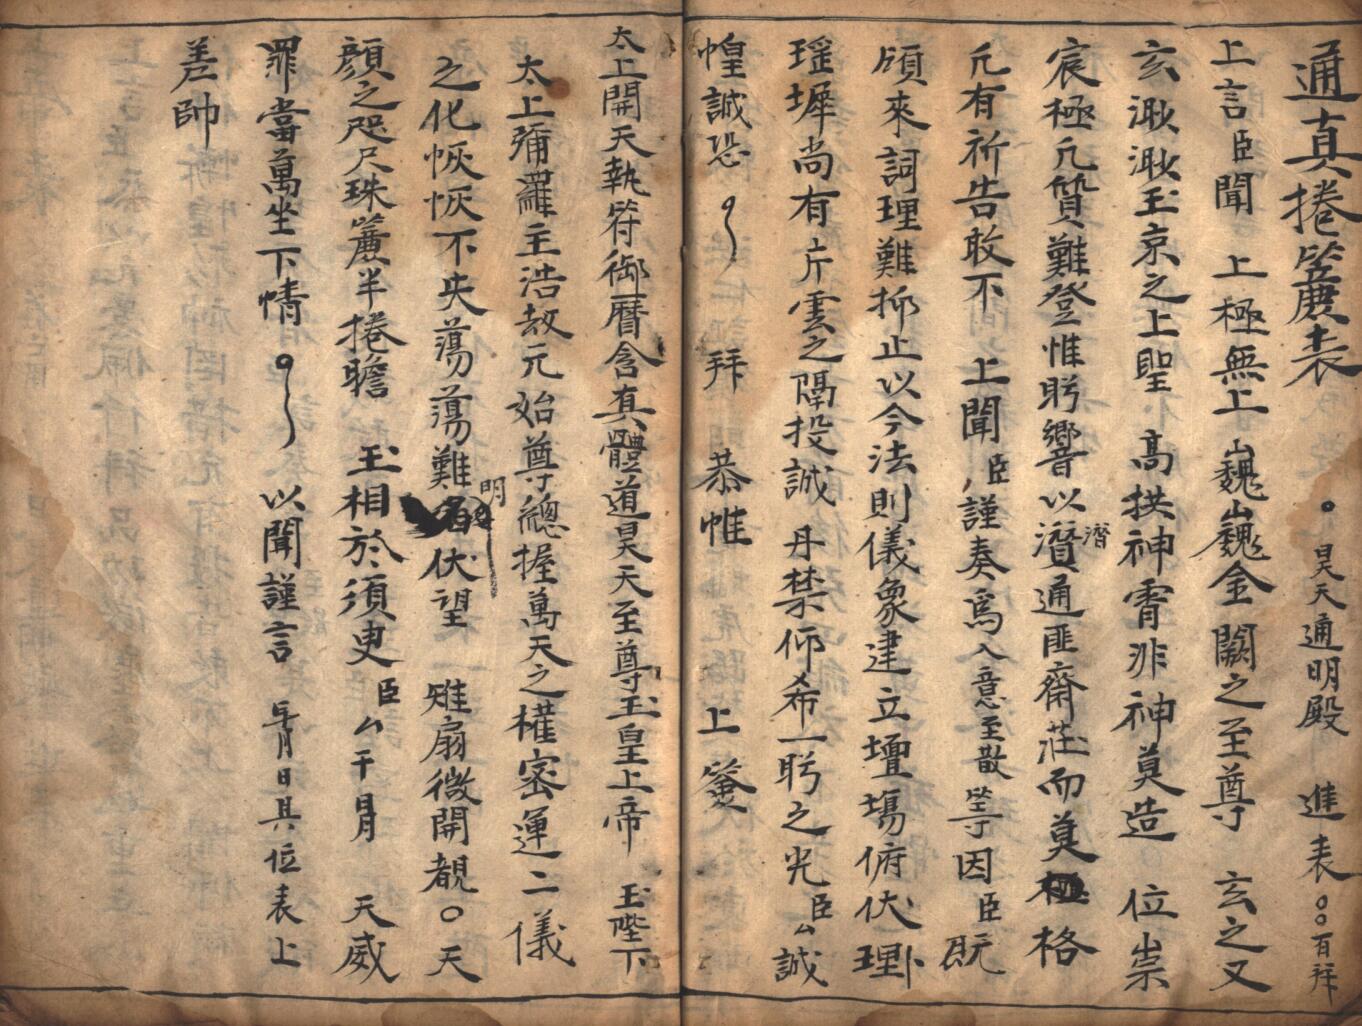 通真捲簾表
。昊天通明殿 進表○○百拜
上言臣聞 上極無上巍巍金闕之至尊 玄之又
玄渺渺玉京之上聖 高拱神霄非神莫造 位崇
宸極凡質難登惟肹響以潛通匪齋莊而莫極格
凡有祈告敢不 上聞 臣謹奏爲入意至散 等因臣既
頎來詞理難抑止以今法則儀象建立壇場俯伏
瑶墀尚有片雲之隔投誠 丹禁仰希一盻之光臣厶誠
惶誠恐 拜 恭惟 上
太上開天執符御曆含真體道昊天至尊玉皇上帝 玉陛下
太上彌羅主浩劫元始尊總握萬天之權密運二儀
之化恢恢不失蕩蕩難明伏望 雉扇微開覩○天
顔之咫尺珠簾半捲瞻 玉相於須臾臣厶干冐 天威
罪當萬坐下情 以聞謹言 年月日具位表上
差帥